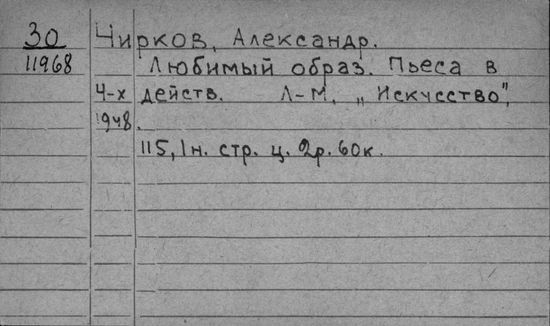 30 Чирков, Александр.
11968 Любимый образ. Пьеса в
4-х действ. Л-М, „Искусство",
1948.
115, 1н. стр. ц. 2р. 60к.